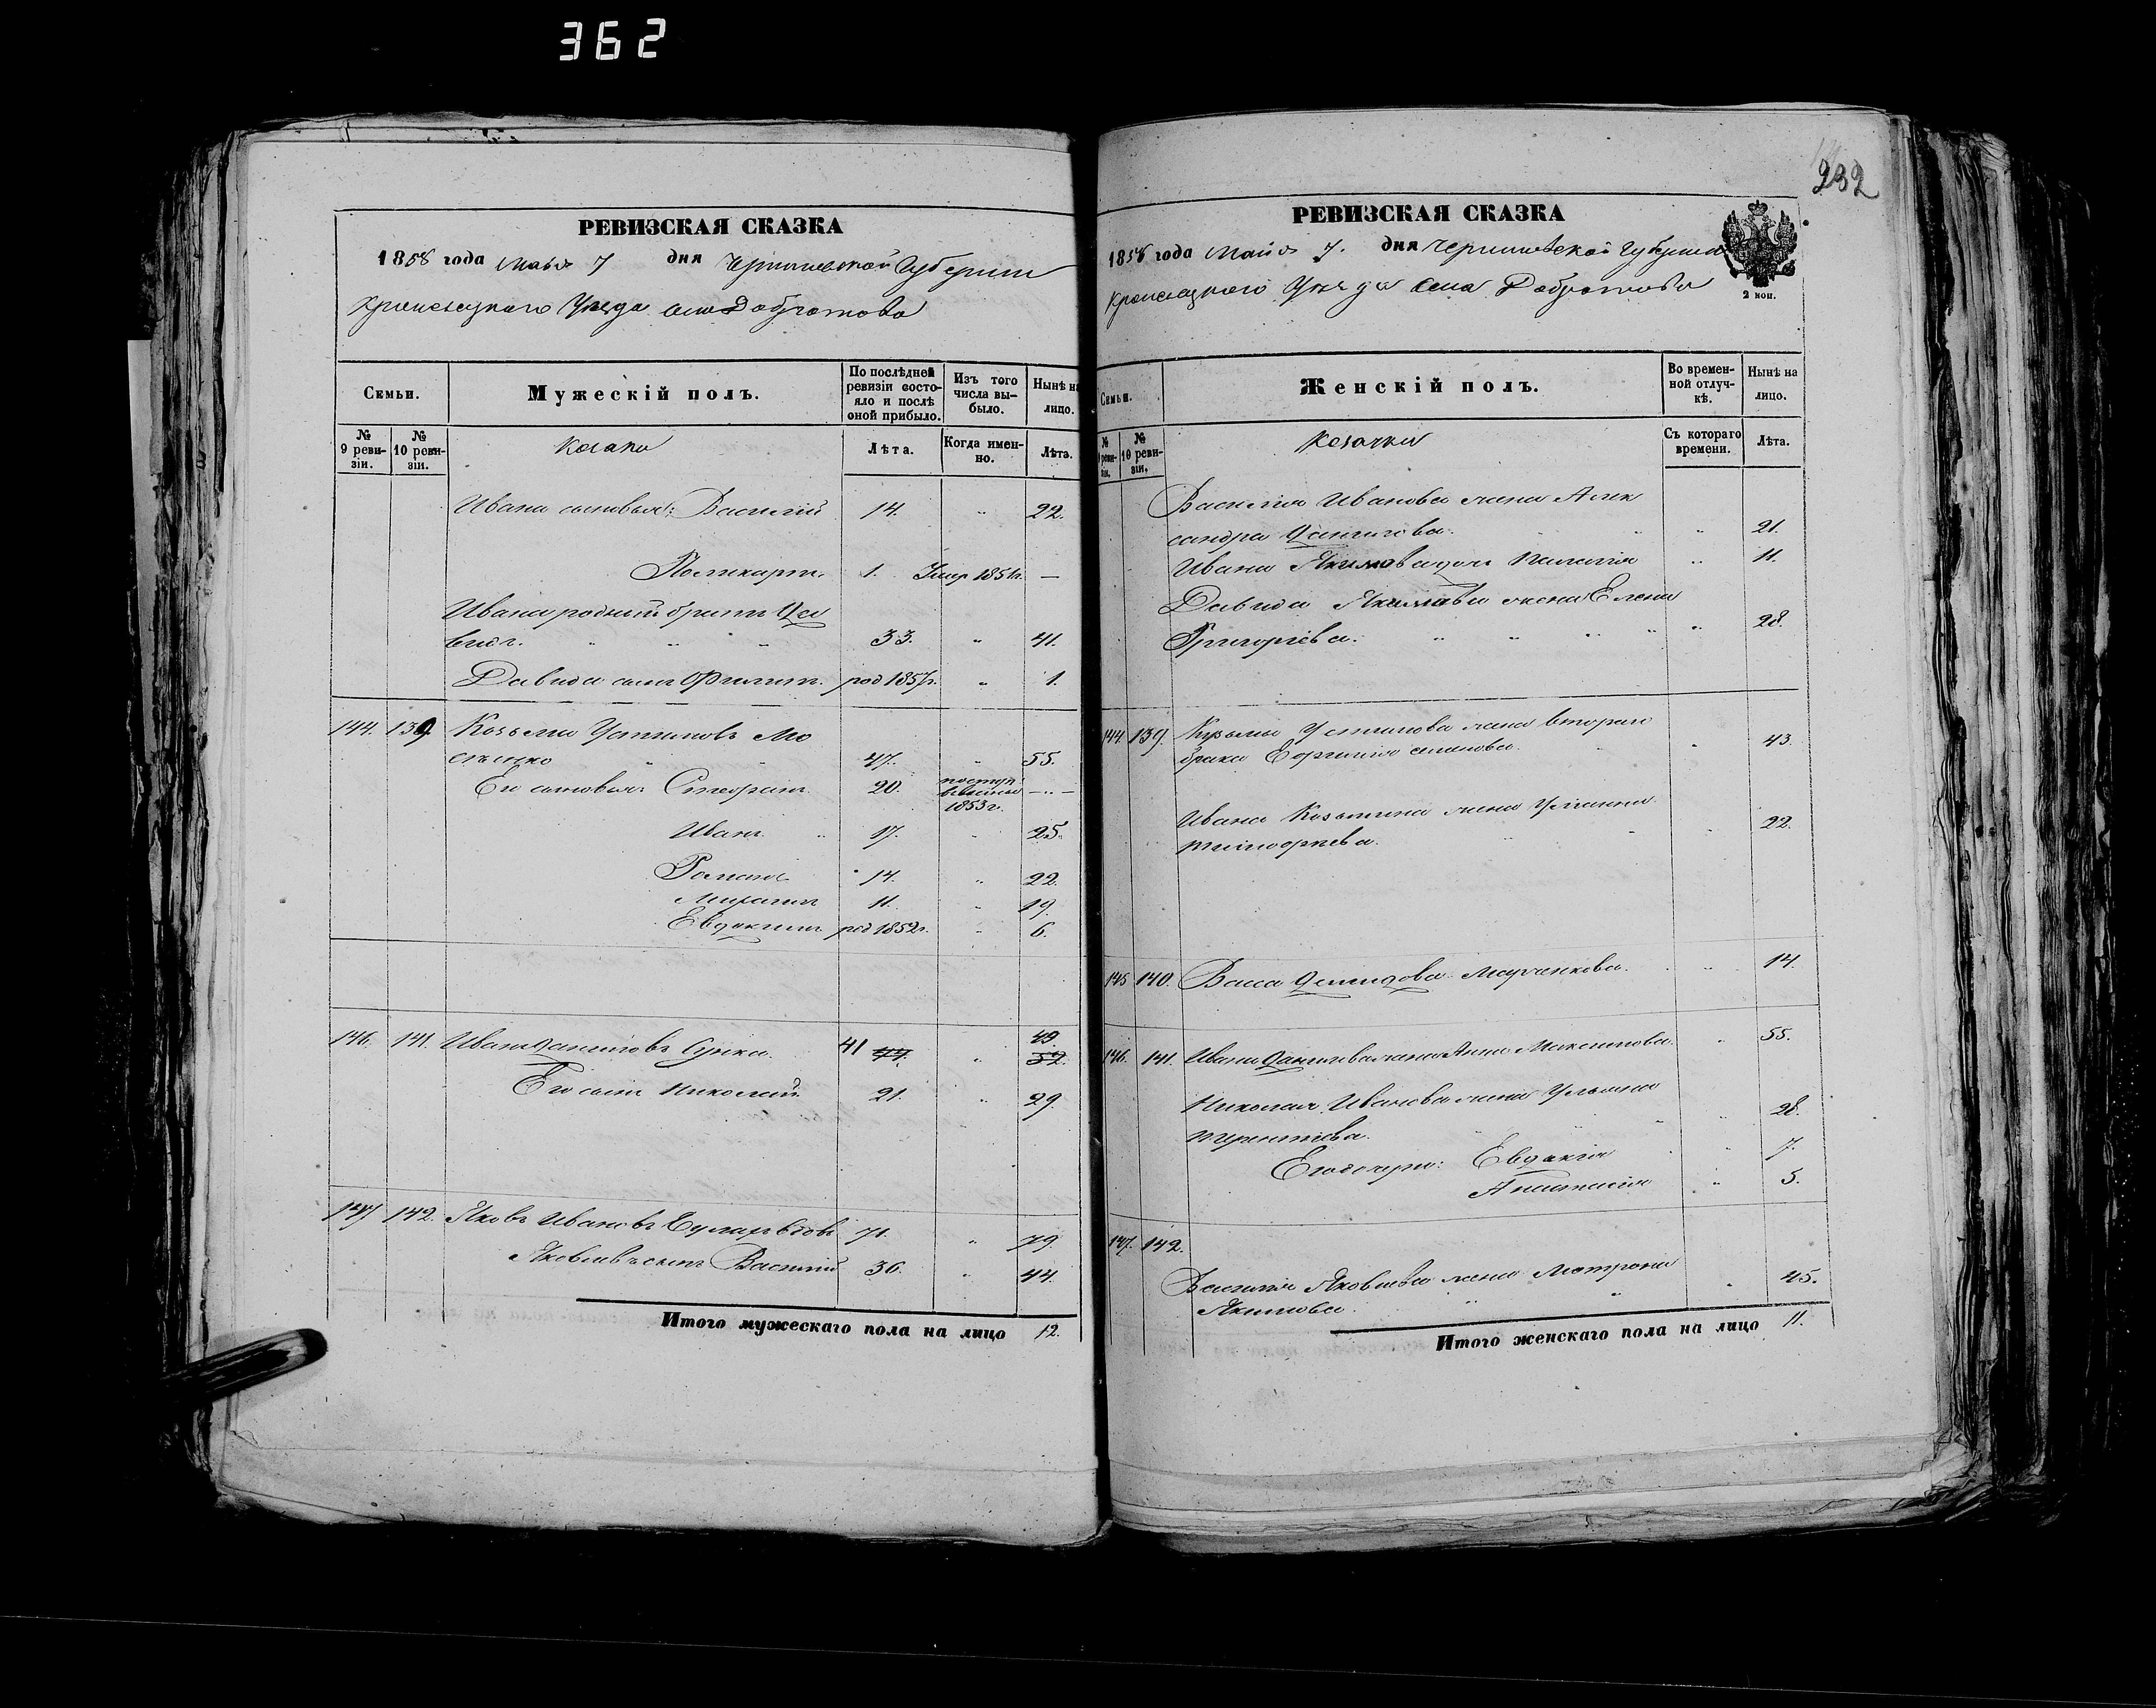 362
РЕВИЗСКАЯ СКАЗКА
1858 года Майя 7 дня Черниговской Губернии
Кролевецкого Уезда села Добротова
Семьи.
Мужескій полъ.
По послѣдней ревизіи состояло и послѣ оной прибыло.
Изъ того числа выбыло.
Нынѣ на лицо.
№ 9 ревизіи.
№ 10 ревизіи.
Козаки
Лѣта.
Когда именно.
Лѣта.
Ивана сыновья: Василий 14. " 22.
Поликарп. 1. Умер 1851г. —
Ивана родный брат Да
вид. " " " 33. " 41.
Давида сын Филип. род 1857г. " 1.
144. 139. Козьма Устинов
47. " 55.
Его сыновья Стефан 20. 1853 г. — " —
Иван " 17. " 25.
Роман 14. " 22.
Михаил 11. " 19.
Евдоким род 1852г. " 6.
146. 141. Иван Данилов 41 44. " 49. 52.
Его сын Николай 21. " 29.
147 142. Яков Иванов 71. " 79.
Яковлев сын Василий 36. " 44.
Итого мужескаго пола на лицо 12.
232
РЕВИЗСКАЯ СКАЗКА
1858 года Майя 7. дня Черниговской Губернии
Кролевецкого Уезда села Добротова
2 коп.
Семьи.
Женскій полъ.
Во временной отлучкѣ.
Нынѣ на лицо.
№ 9 ревизіи.
№ 10 ревизіи.
Козачки
Съ котораго времени.
Лѣта.
Василия Иванова жена Алек
сандра Данилова. " 21.
Ивана Якимова дочь Палагия " 11.
Давида Якимова жена Елена
Григориева. " " " " " 28.
144. 139. Кузьмы Устинова жена втораго
брака Евгения Семенова. " 43.
Ивана Козьмина жена Ульяна
Тимофеева. " 22.
145 140. Васса Демидова " 14.
146. 141. Ивана Данилова жена Анна Максимова. " 55.
Николая Иванова жена Ульяна
Терентиева. " 28.
Его дочери: Евдокия " 7.
Анастасия " 5.
147. 142.
Василия Яковлева жена Матрона
Якимова. " " " 45.
Итого женскаго пола на лицо 11.